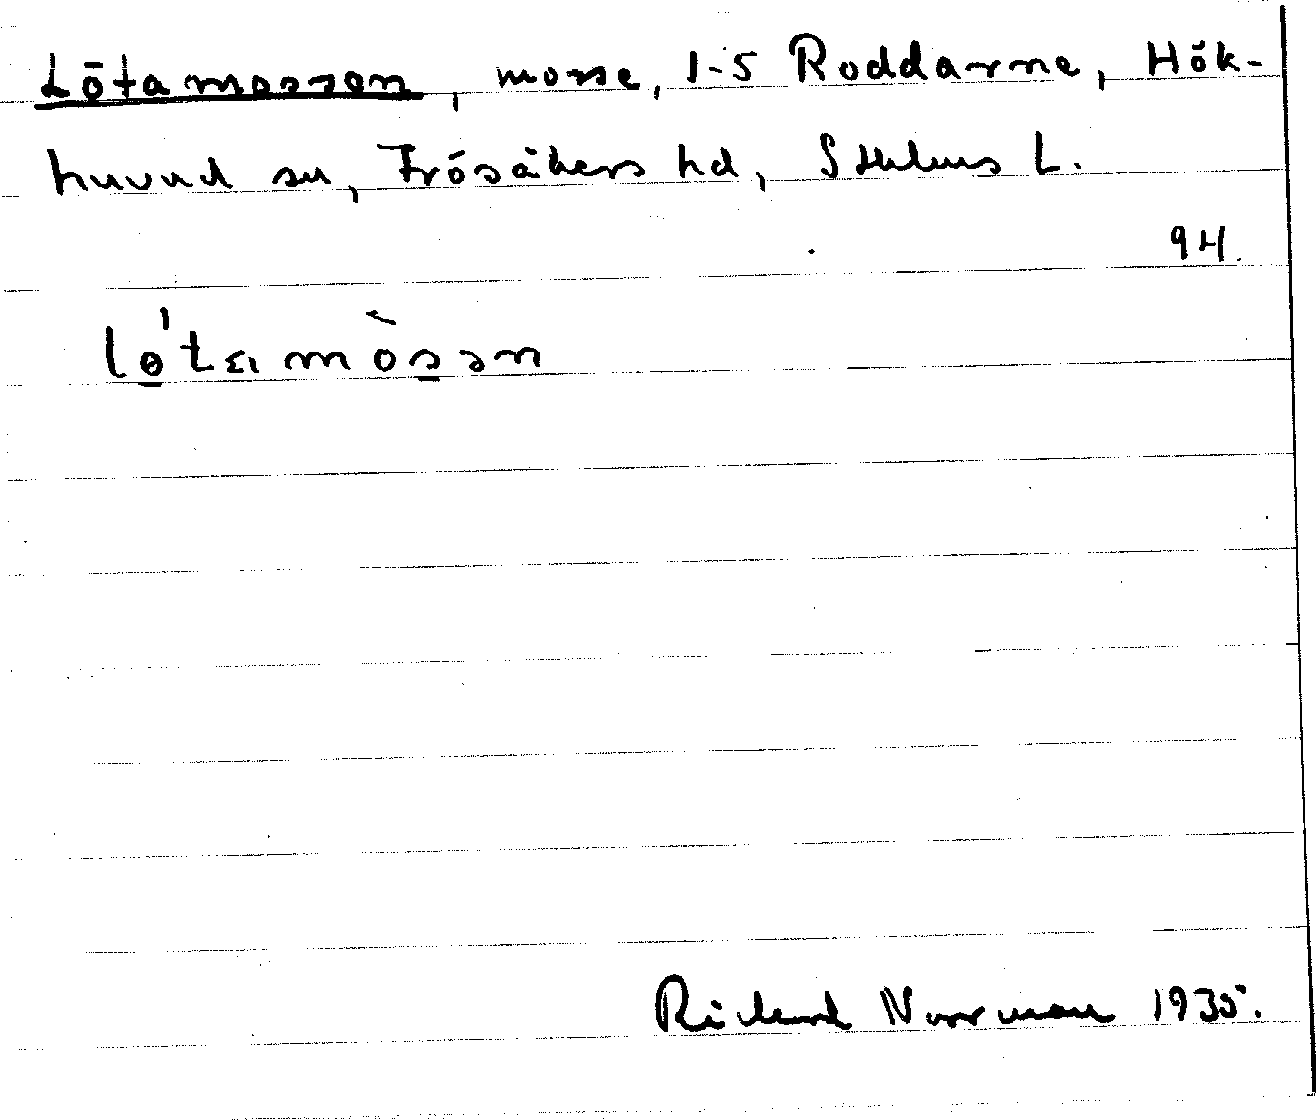 Lötamossen, mosse, 1-5 Roddarne, Hök-
huvud sn, Frösåkers hd, Sthlms L.
94.
Richard Norrman 1935.